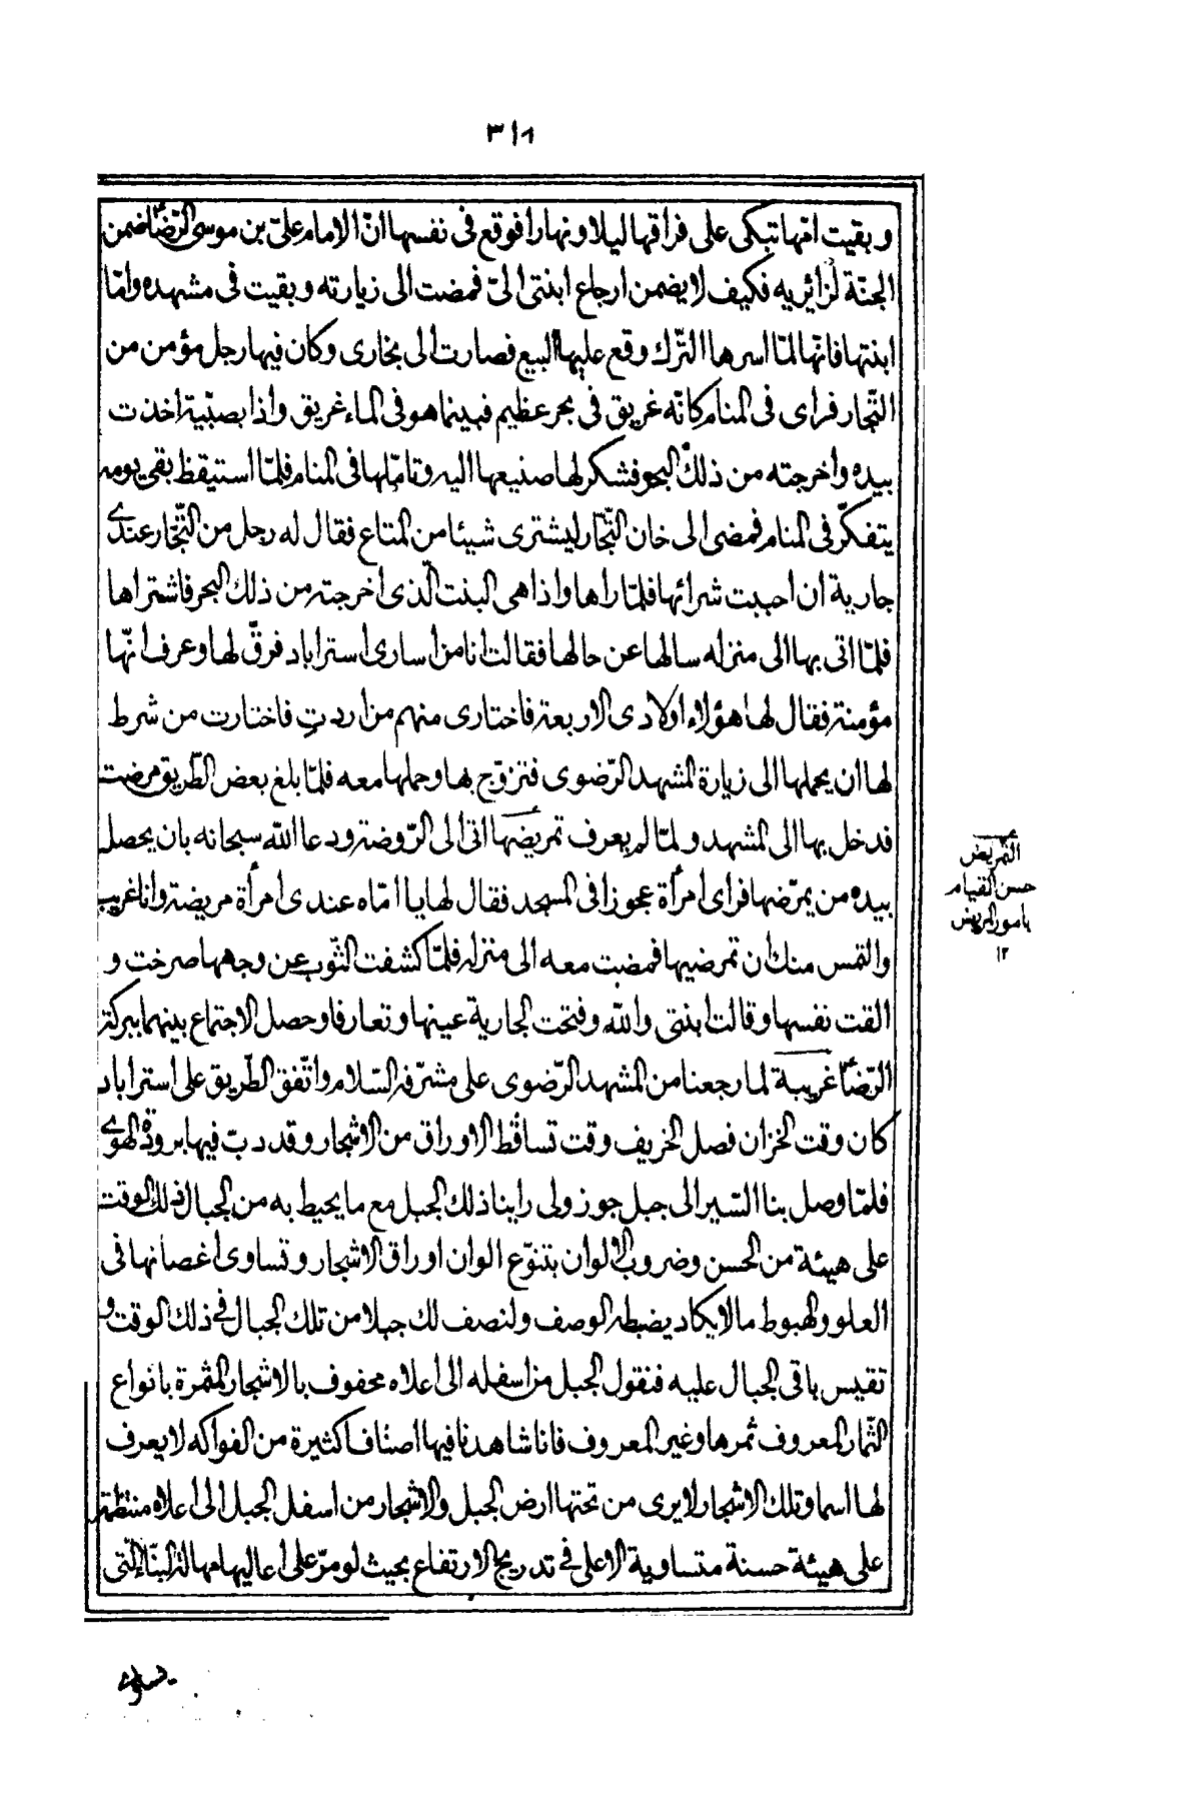 ٣١٨
و بقيت امّها تبكى على فراقها ليلا و نهارا فوقع فى نفسها انّ الامام علىّ بن موسى الرّضا ضمن
الجنّة لزائريه فكيف لا يضمن ارجاع ابنتى الىّ فمضت الى زيارته و بقيت فى مشهده وامّا
ابنتها فانّها لمّا اسرها التّرك وقع عليها البيع فصارت الى بخارى وكان فيها رجل مؤمن من
التّجار فراى فى المنام كانّه غريق فى بحر عظيم فبينما هو فى الماء غريق واذا بصبّية اخذت
بيده واخرجته من ذلك البحر فشكر لها صنيعها اليه وتامّلها فى المنام فلمّا استيقظ بقى يومه
يتفكّر فى المنام فمضى الى خان التّجار ليشترى شيئا من المتاع فقال له رجل من التّجار عندى
جارية ان احببت شرائها فلمّا راها واذا هى البنت الّذى اخرجته من ذلك البحر فاشتراها
فلمّا اتى بها الى منزله سالها عن حالها فقالت انا من اسارى استراباد فرقّ لها وعرف انّها
مؤمنة فقال لها هؤلاء اولادى الاربعة فاختارى منهم من اردتِ فاختارت من شرط
لها ان يحملها الى زيارة المشهد الرّضوى فتزوّج بها وحملها معه فلمّا بلغ بعض الطّريق مرضت
فدخل بها الى المشهد و لمّا لم يعرف تمريضها اتى الى الرّوضة ودعا اللّه سبحانه بان يحصل
بيده من يمرّضها فراى امرأة عجوزا فى المسجد فقال لها يا امّاه عندى امرأة مريضة وانا غريب
والتمس منك ان تمرضيها فمضت معه الى منزله فلمّا كشفت الثّوب عن وجهها صرخت و
القت نفسها وقالت ابنتى واللّه وفتحت الجارية عينها وتعارفا وحصل الاجتماع بينهما ببركة
الرّضا غريبة لما رجعنا من المشهد الرّضوى على مشرّفه السّلام واتّفق الطّريق على استراباد
كان وقت الخزان فصل الخريف وقت تساقط الاوراق من الاشجار وقد دبّ فيها برودة الهوى
فلمّا وصل بنا السّير الى جبل جوز ولى راينا ذلك الجبل مع ما يحيط به من الجبال فى ذلك الوقت
على هيئة من الحسن وضروب الالوان بتنوّع الوان اوراق الاشجار و تساوى اغصانها فى
العلو والهبوط ما لا يكاد يضبطه الوصف ولنصف لك جبلا من تلك الجبال فى ذلك الوقت و
تقيس باقى الجبال عليه فنقول الجبل من اسفله الى اعلاه محفوف بالاشجار المثمرة بانواع
الثّمار المعروف ثمرها وغير المعروف فانا شاهدنا فيها اصنافا كثيرة من الفواكه لا يعرف
لها اسما وتلك الاشجار لا يرى من تحتها ارض الجبل والاشجار من اسفل الجبل الى اعلاه منتظمة
على هيئة حسنة متساوية الاعلى فى تدريج الارتفاع بحيث لو مرّ على اعاليها البنّاء التى
التمريض
حسن القيام
بامور المريض
١٢